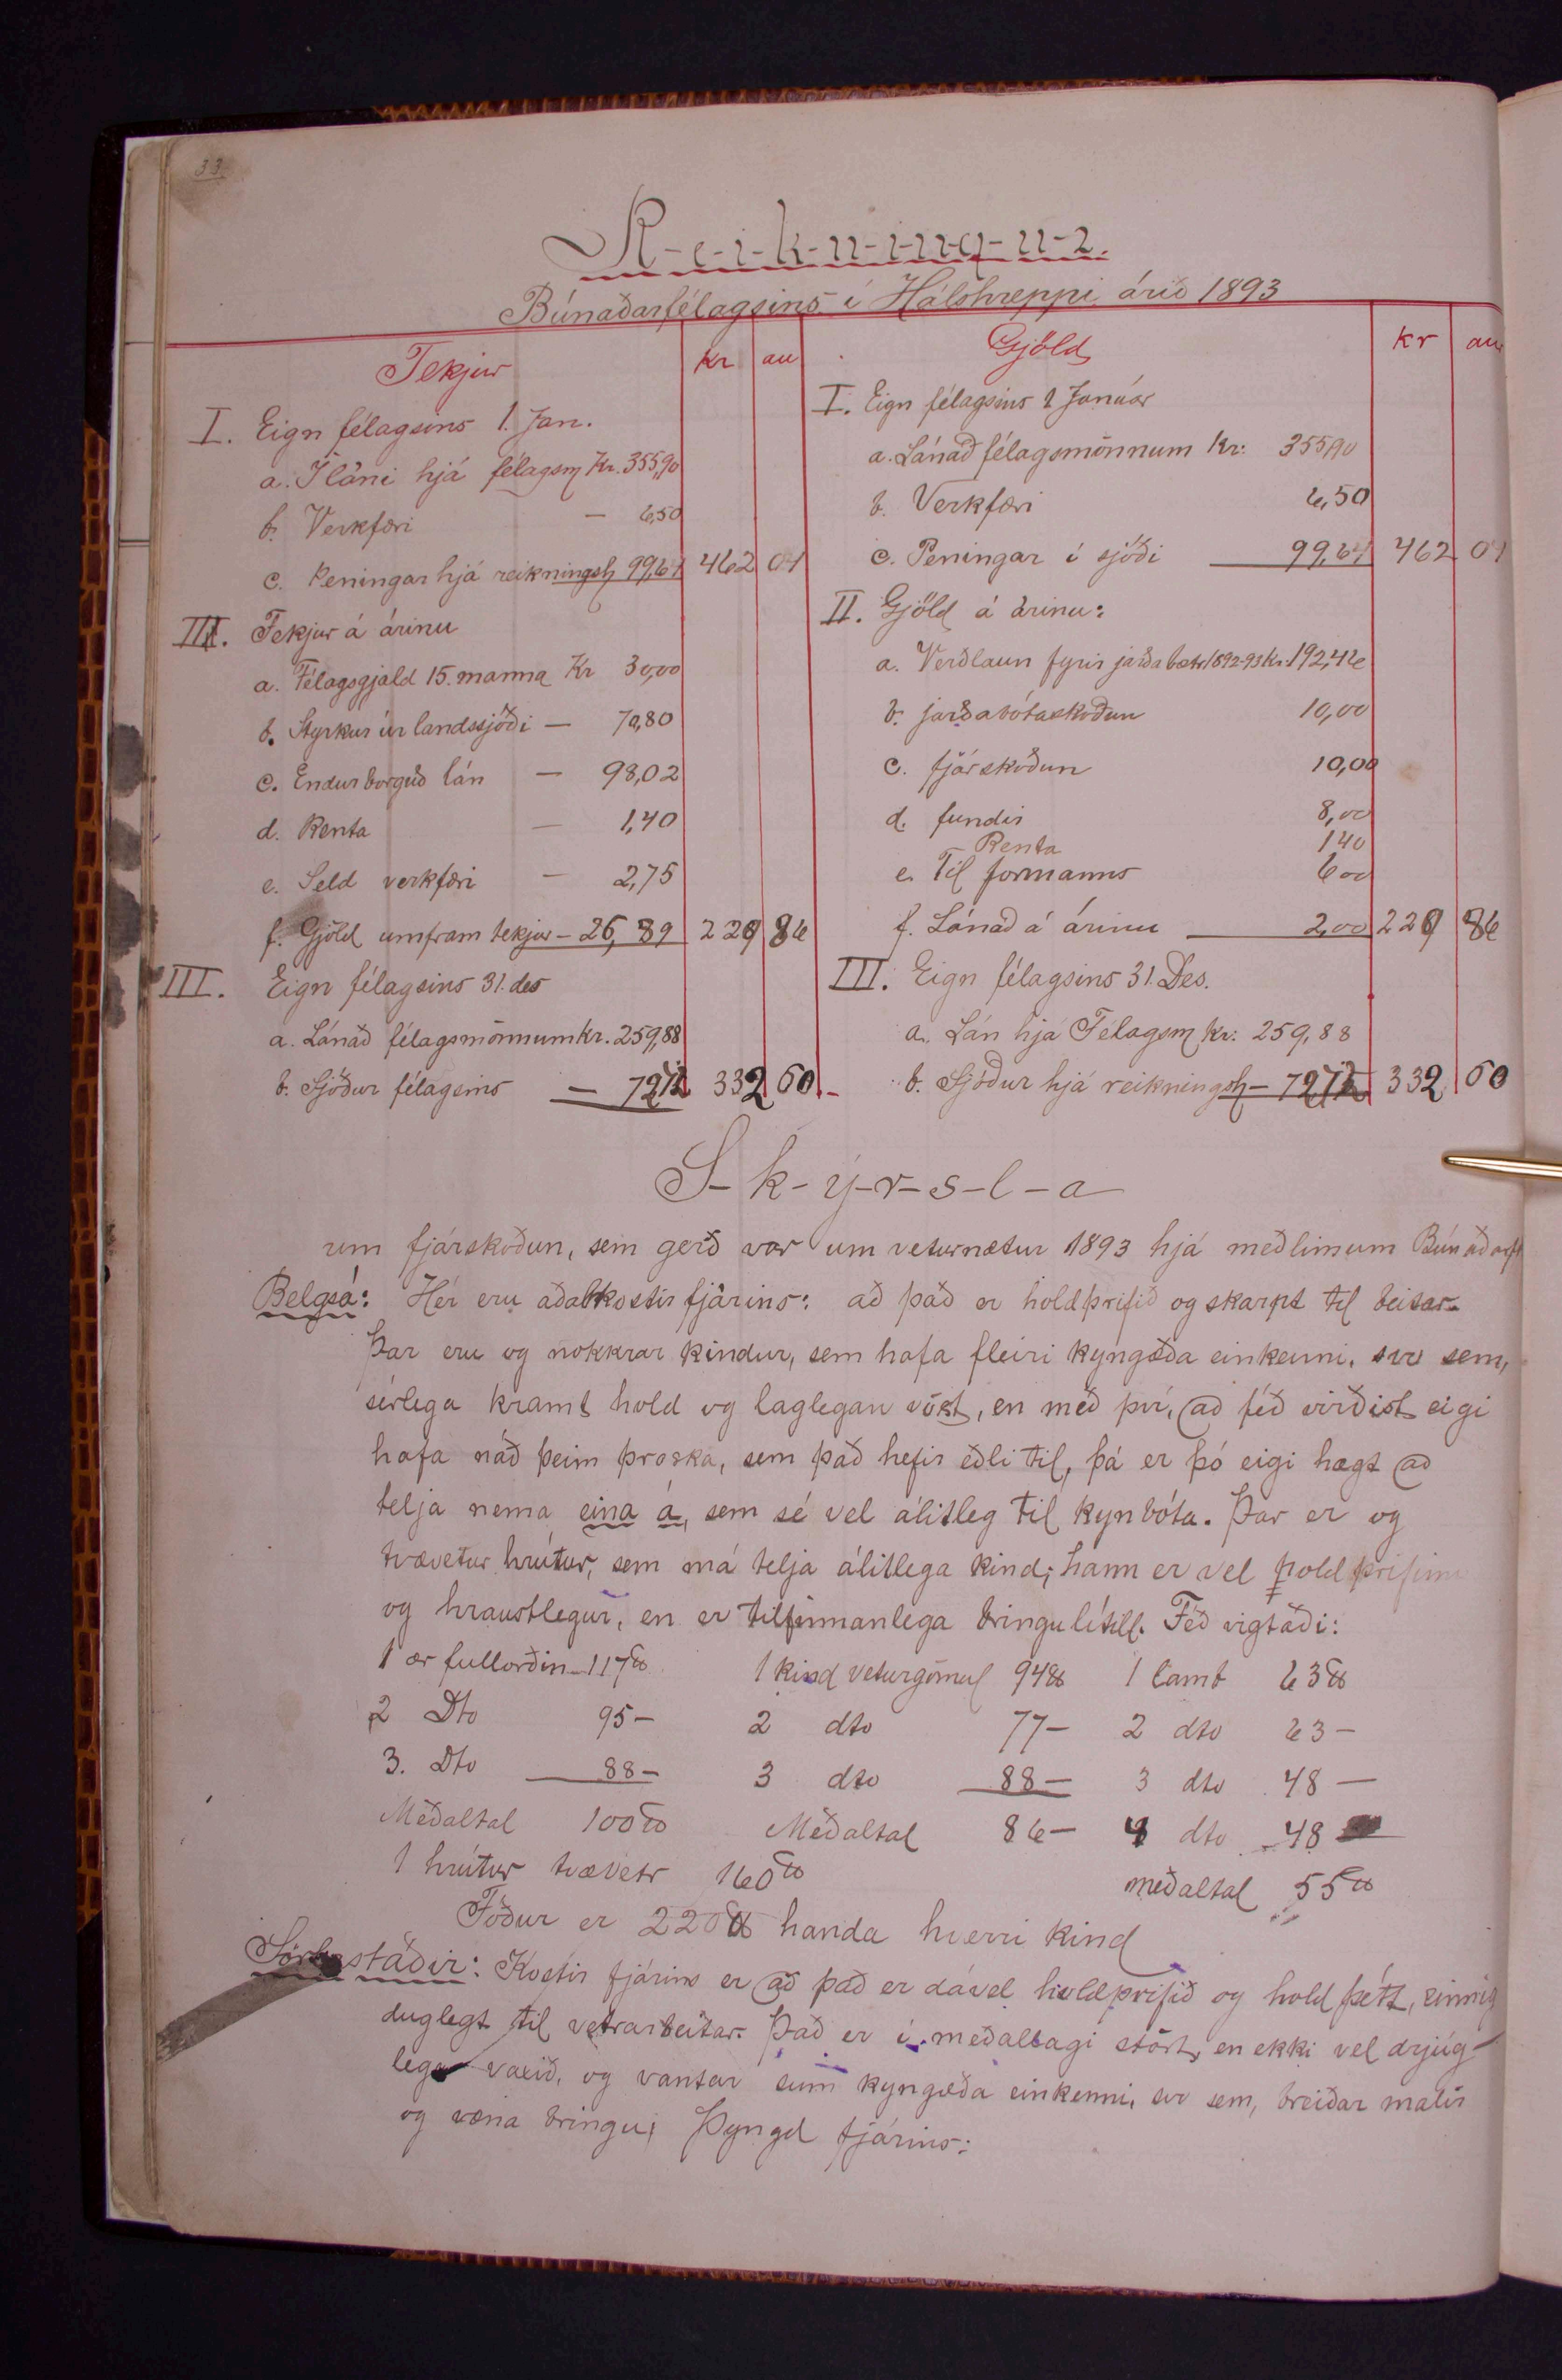 33
R-e-i-k-n-i-n-g-u-r.
Búnaðarfélagsins í Hálshreppi árið 1893
Tekjur kr au
I. Eign félagsins 1. Jan.
a. Í láni hjá félagsm Kr. 355,90
b. Verkfæri — 6,50
c. Peningar hjá reikningsh 99,64 462 04
II. Tekjur á árinu
a. Félagsgjald 15. manna Kr 30,00
b. Styrkur úr landssjóði — 70,80
c. Endurborguð lán — 98,02
d. Renta — 1,40
e. Seld verkfæri — 2,75
f. Gjöld umfram tekjur — 26,89 229 86
III. Eign félagsins 31. des
a. Lánað félagsmönnum kr. 259,88
b. Sjóður félagsins — 72,72 332 60
Gjöld kr au
I. Eign félagsins 1 Janúar
a. Lánað félagsmönnum Kr: 355,90
b. Verkfæri 6,50
c. Peningar í sjóði 99,64 462 04
II. Gjöld á árinu:
a. Verðlaun fyrir jarðabætr 1892-93 Kr. 192,46
b. jarðabótaskoðun 10,00
c. fjárskoðun 10,00
d. fundir 8,00
Renta 1 40
e. Til formanns 6 00
f. Lánað á árinu 2,00 229 86
III. Eign félagsins 31. Des.
a. Lán hjá Félagsm kr: 259,88
b. Sjóður hjá reikningsh — 72,72 332 60
S-k-ý-r-s-l-a
um fjárskoðun, sem gerð var um veturnætur 1893 hjá meðlimum Búnaðarf
Belgsá: Hér eru aðalkostir fjárins: að það er holdþrifið og skarpt til beitar.
Þar eru og nokkrar kindur, sem hafa fleiri kyngæða einkenni, svo sem,
sérlega kramt hold og laglegan vöxt, en með því, að féð virðist eigi
hafa náð þeim þroska, sem það hefir eðli til, þá er þó eigi hægt að
telja nema eina á, sem sé vel álitleg til kynbóta. Þar er og
tvævetur hrútur, sem má telja álitlega kind; hann er vel holdþrifinn
og hraustlegur, en er tilfinnanlega bringulítill. Féð vigtaði:
1 ær fullorðin 117 ℔ 1 kind veturgömul 94 ℔ 1 lamb 63 ℔
2 Dto 95 — 2 dto 77 — 2 dto 63 —
3. Dto 88 — 3 dto 88 — 3 dto 48 —
Meðaltal 100 ℔ Meðaltal 86 — 4 dto 48
1 hrútur tvævetr 160 ℔ meðaltal 55 ℔
Fóður er 220 ℔ handa hverri kind
Kostir fjárins er að það er dável holdþrifið og hold þétt, einnig
duglegt til vetrarbeitar. Það er í meðallagi stórt, en ekki vel drjúg-
lega vaxið, og vantar sum kyngæða einkenni, svo sem, breiðar malir
og væna bringu; Þyngd fjárins: